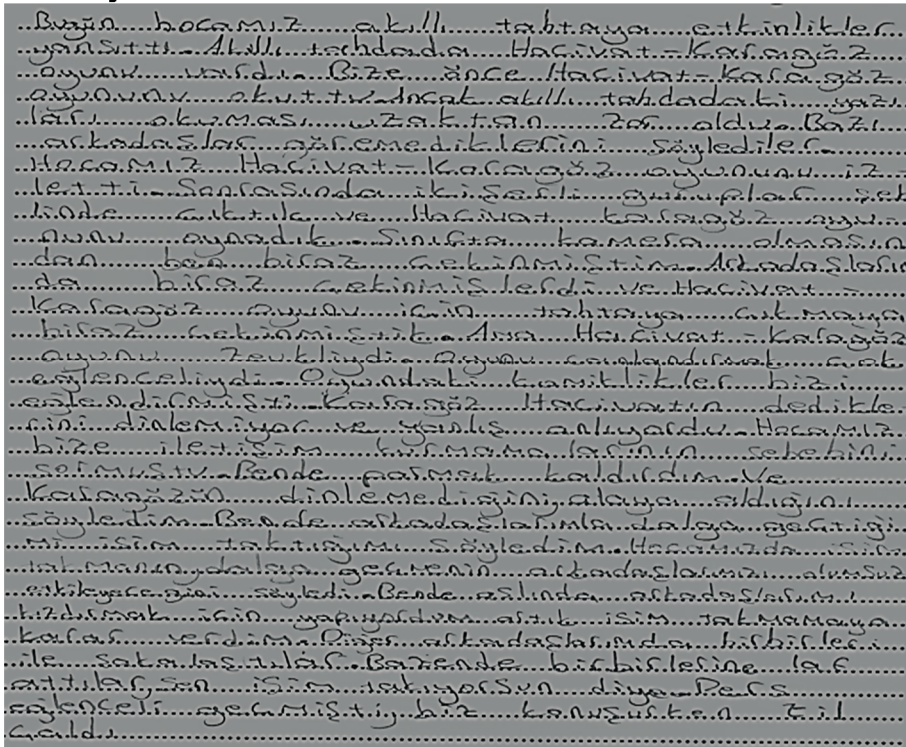 Bugün hocamız akıllı tahtaya etkinlikler
yansıttı. Akıllı tachdada Hacivat-Karagöz
oyunu vardı. Bize önce Hacivat-Karagöz
oyununu okuttu. Ancak akıllı tahdadaki yazı
ları okuması uzaktan zor oldu. Bazı
arkadaşlar göremediklerini söylediler.
Hocamız Hacivat-Karagöz oyununu iz
letti. Sonrasında ikişerli guruplar şek
linde çıktık ve Hacivat karagöz oyu-
nunu oynadık. Sınıfta kamera olmasın
dan ben biraz çekinmiştim. Arkadaşlarım
da biraz çekinmişlerdi ve Hacivat-
Karagöz oyunu için tahtaya çıkmaya
biraz çekinmiştik. Ama Hacivat-Karagöz
oyunu zevkliydi. Oyunu canlandırmak çok
eğlenceliydi. Oyundaki komiklikler bizi
eğlendirmişti. Karagöz Hacivatın dedikle
rini dinlemiyor ve yanlış anlıyordu. Hocamız
bize iletişim kurmamalarının sebebini
sormuştu. Bende parmak kaldırdım. Ve
Karagözün dinlemediğini, alaya aldığını
söyledim. Bende arkadaşlarımla dalga geçtiği
mi isim taktığımı söyledim. Hocamızda isim
takmanın, dalga geçmenin arkadaşlarımızı olumsuz
etkileyeceğini söyledi. Bende aslında arkadaşlarımı
kızdırmak için yapıyordum artık isim takmamaya
karar verdim. Diğer arkadaşlarımda birbirleri
ile şakalaştılar. Bazende birbirlerine laf
attılar, sen isim takıyorsun diye. Ders
eğlenceli geçmişti, biz konuşurken zil
çaldı.